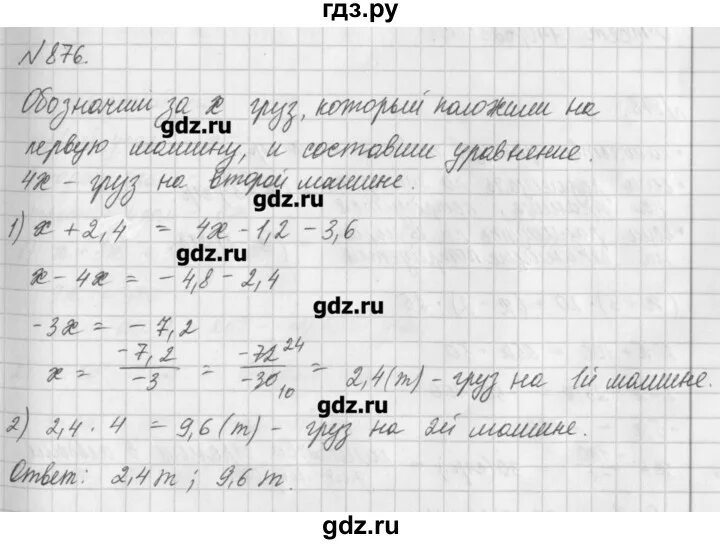 гдз.ру
№876.
Обозначим за x груз, который положили на
gdz.ru
первую машину, и составим уравнение.
4x – груз на второй машине.
gdz.ru
1) x + 2,4 = 4x - 1,2 - 3,6
gdz.ru
x - 4x = - 4,8 - 2,4
gdz.ru
-3x = - 7,2
x = -7,2/-3 = -72 24/-30 10 = 2,4(т) – груз на 1й машине.
gdz.ru
2) 2,4 · 4 = 9,6(т) – груз на 2й машине.
gdz.ru
Ответ: 2,4 т; 9,6 т.
gdz.ru